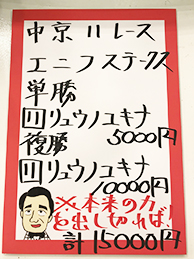 中京11レース
エニフステークス
単勝
⑪リュウノユキナ
5000円
複勝
⑪リュウノユキナ
10000円
※本来の力
を出し切れば!
計15000円